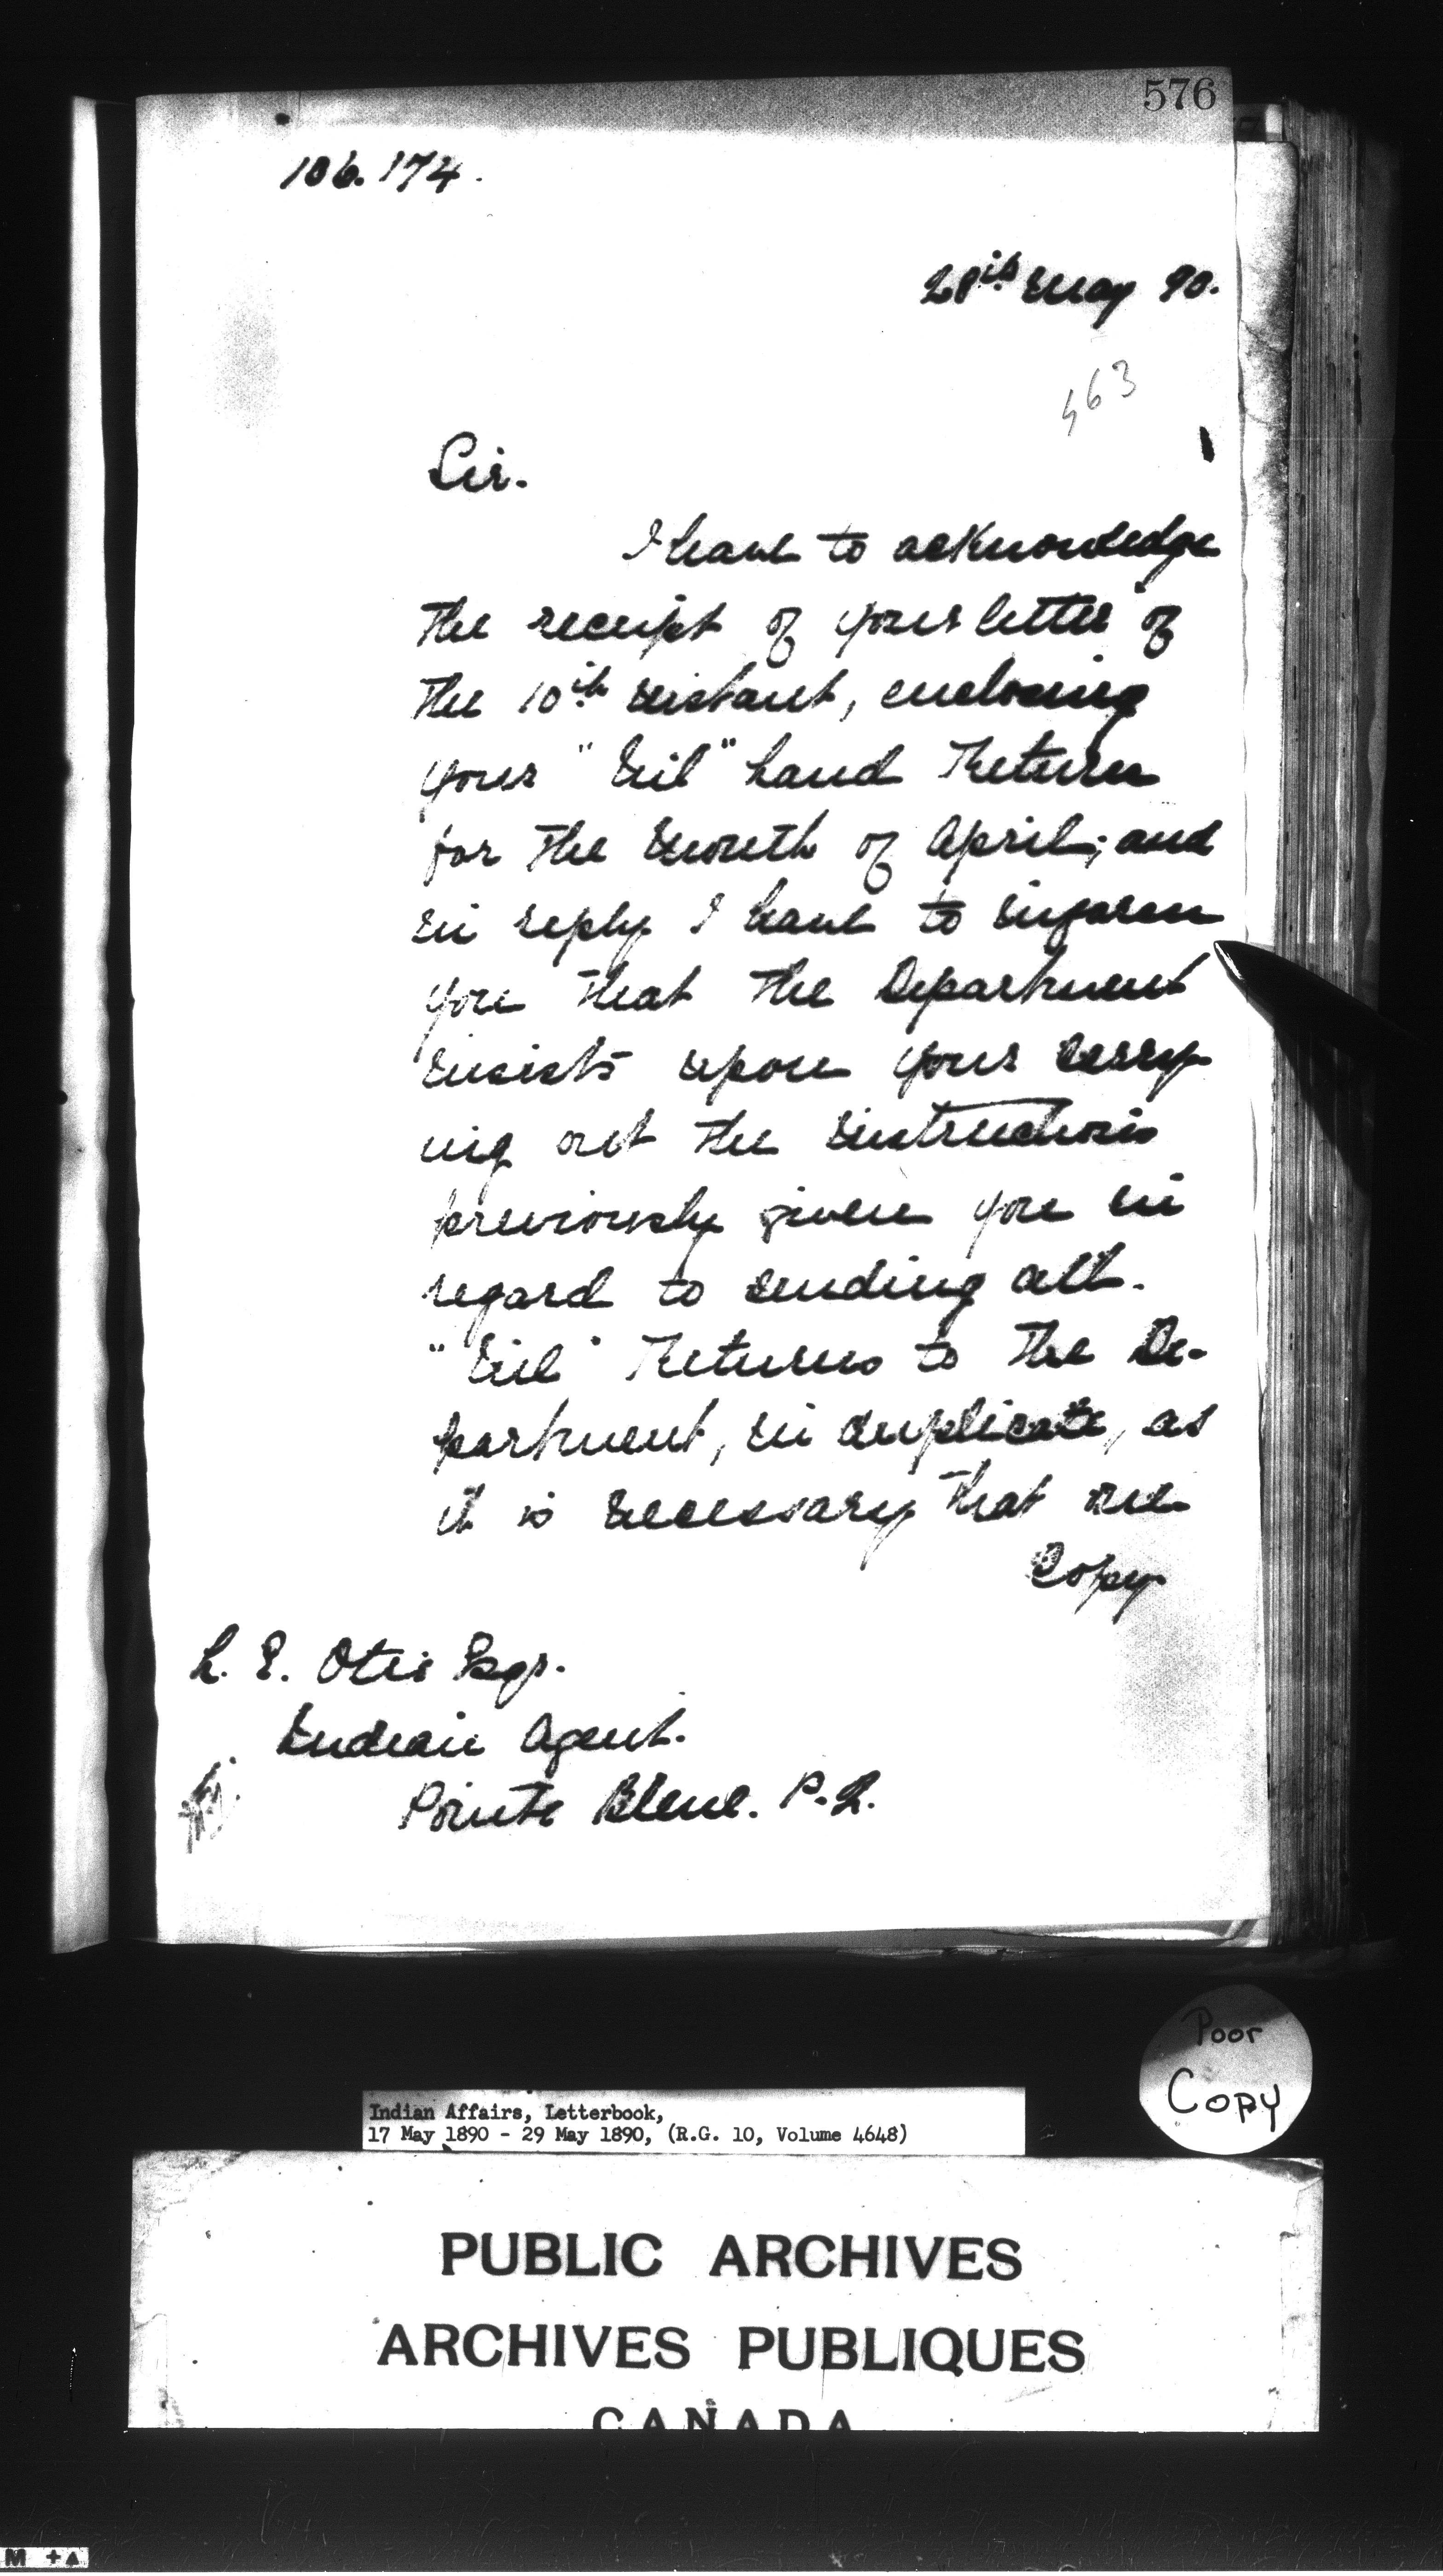 576
106.174.
28th May 90.
463
Sir.
I have to acknowledge
the receipt of your letter of
the 10th instant, enclosing
your "Nil" Land Return
for the month of April; and
in reply I have to inform
you that the Department
insists upon your carry
ing out the instructions
previously given you in
regard to sending all
"Nil" Returns to the De-
partment, in duplicate, as
it is necessary that one
Copy
L. E. Otis Esqr.
Indian Agent.
Pointe Bleue. P.Q.
Poor
Copy
Indian Affairs, Letterbook,
17 May 1890 - 29 May 1890, (R.G. 10, Volume 4648)
PUBLIC ARCHIVES
ARCHIVES PUBLIQUES
CANADA